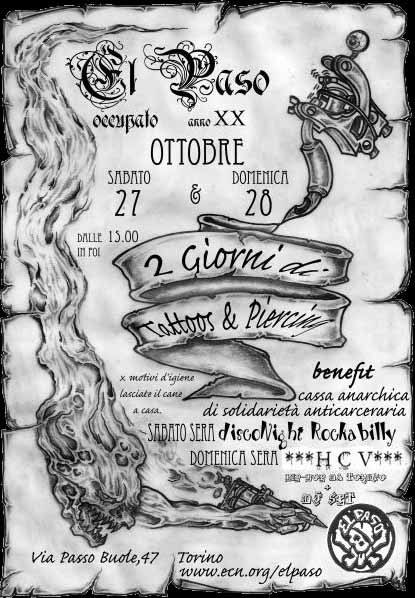 El Paso
occupato anno XX
OTTOBRE
SABATO
27
&
DOMENICA
28
DALLE 15.00
IN POI
2 Giorni di
Tattoos & Piercing
x motivi d'igiene
lasciate il cane
a casa.
benefit
cassa anarchica
di solidarietà anticarceraria
SABATO SERA discoNight Rockabilly
DOMENICA SERA ***H C V***
HIP-HOP DA TORINO
+
DJ SET
EL PASO
Via Passo Buole,47 Torino
www.ecn.org/elpaso